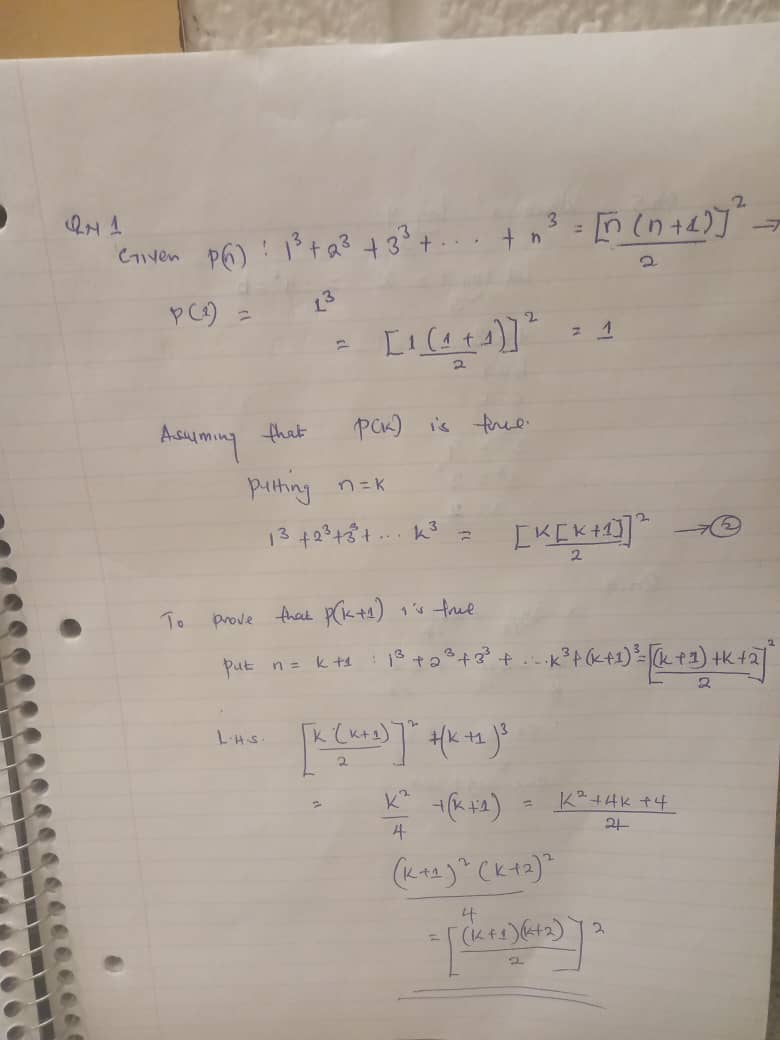 QN 1
Given p(n) : 1³ + 2³ + 3³ + . . . + n³ = [n (n+1)]² →
2
p(1) = 1³
= [1 (1 + 1)]² = 1
2
Assuming that p(k) is true.
putting n = k
1³ + 2³ + 3³ + ... k³ = [K[K+1]]² → ②
2
To prove that p(k+1) is true
put n = k+1 : 1³ + 2³ + 3³ + ... k³ + (k+1)³ = [(k+1) + k+2]²
2
L.H.S. [K (K+1)]² + (k+1)³
2
= k² + (k+1) = k² + 4k + 4
4 4
(k+1)² (k+2)²
4
= [(k+1)(k+2)]²
2